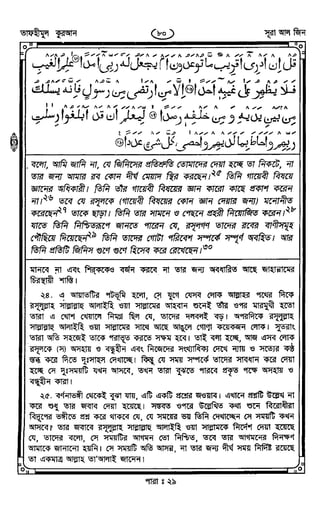 তাফহীমুল কুরআন
৮০
সূরা আল জিন
قُلْ إِنْ أَدْرِي أَقَرِيبٌ مَّا تُوعَدُونَ أَمْ يَجْعَلُ لَهُ رَبِّي أَمَدًا ۝ عٰلِمُ الْغَيْبِ
فَلَا يُظْهِرُ عَلٰى غَيْبِهِ أَحَدًا ۝ إِلَّا مَنِ ارْتَضٰى مِنْ رَّسُولٍ فَإِنَّهُ يَسْلُكُ
مِنْ بَيْنِ يَدَيْهِ وَمِنْ خَلْفِهِ رَصَدًا ۝ لِّيَعْلَمَ أَنْ قَدْ أَبْلَغُوا رِسٰلٰتِ
رَبِّهِمْ وَأَحَاطَ بِمَا لَدَيْهِمْ وَأَحْصٰى كُلَّ شَيْءٍ عَدَدًا ۝
বলো, আমি জানি না, যে জিনিসের প্রতিশ্রুতি তোমাদের দেয়া হচ্ছে তা নিকটে, না
তার জন্য আমার রব কোন দীর্ঘ মেয়াদ স্থির করছেন।২৫ তিনি গায়েবী বিষয়ে
জ্ঞানের অধিকারী। তিনি তাঁর গায়েবী বিষয়ের জ্ঞান কারো কাছে প্রকাশ করেন
না।২৬ তবে যে রসূলকে (গায়েবী বিষয়ের কোন জ্ঞান দেয়ার জন্য) মনোনীত
করেছেন২৭ তাকে ছাড়া। তিনি তার সামনে ও পেছনে প্রহরী নিয়োজিত করেন।২৮
যাতে তিনি নিশ্চিতরূপে জানতে পারেন যে, রসূলগণ তাদের রবের বাণীসমূহ
পৌঁছিয়ে দিয়েছেন২৯ তিনি তাদের গোটা পরিবেশ সম্পর্কে সম্পূর্ণ অবহিত। আর
তিনি প্রতিটি জিনিস গুণে গুণে হিসেব করে রেখেছেন।৩০
মানবে না এবং শিরকও বর্জন করবে না তার জন্য অবধারিত আছে জাহান্নামের
চিরস্থায়ী শাস্তি।
২৪. এ আয়াতটির পটভূমি হলো, সে যুগে যেসব লোক আল্লাহর পথের দিকে
রসূলুল্লাহ সাল্লাল্লাহু আলাইহি ওয়া সাল্লামের আহবান শুনেই তাঁর ওপর মারমুখী হতো
তারা এ খোশ খেয়ালে নিমগ্ন ছিল যে, তাদের দলবলই বড়। অপরদিকে রসূলুল্লাহ
সাল্লাল্লাহু আলাইহি ওয়া সাল্লামের সাথে আছে আঙুলে গোণা কয়েকজন লোক। সুতরাং
তারা অতি সহজেই তাকে পরাভূত করতে সক্ষম হবে। তাই বলা হচ্ছে, আজ এসব লোক
রসূলকে (সা) অসহায় ও বন্ধুহীন এবং নিজেদের সংখ্যাধিক্য দেখে ন্যায় ও সত্যের কণ্ঠ
স্তব্ধ করে দিতে দুঃসাহস দেখাচ্ছে। কিন্তু যে সময় সম্পর্কে তাদের সাবধান করে দেয়া
হচ্ছে সে দুঃসময়টি যখন আসবে, তখন তারা বুঝতে পারবে প্রকৃত পক্ষে অসহায় ও
বন্ধুহীন কারা।
২৫. বর্ণনাভঙ্গী থেকেই বুঝা যায়, এটি একটি প্রশ্নের জওয়াব। এখানে প্রশ্নটি উল্লেখ না
করে শুধু তার জবাব দেয়া হয়েছে। সম্ভবত ওপরে উল্লেখিত কথা শুনে বিরোধীরা
বিদ্রূপের ভঙ্গীতে প্রশ্ন করে থাকবে যে, যে সময়ের ভয় তিনি দেখাচ্ছেন সে সময়টি কখন
আসবে? তার জবাবে রসূলুল্লাহ সাল্লাল্লাহু আলাইহি ওয়া সাল্লামকে নির্দেশ দেয়া হয়েছে
যে, তাদের বলো, সে সময়টির আগমন তো নিশ্চিত, তবে তার আগমনের দিনক্ষণ
আমাকে জানানো হয়নি। সে সময়টি অতি আসন্ন, না তার জন্য দীর্ঘ সময় নির্দিষ্ট রয়েছে
তা একমাত্র আল্লাহ তা'আলাই জানেন।
পারা : ২৯